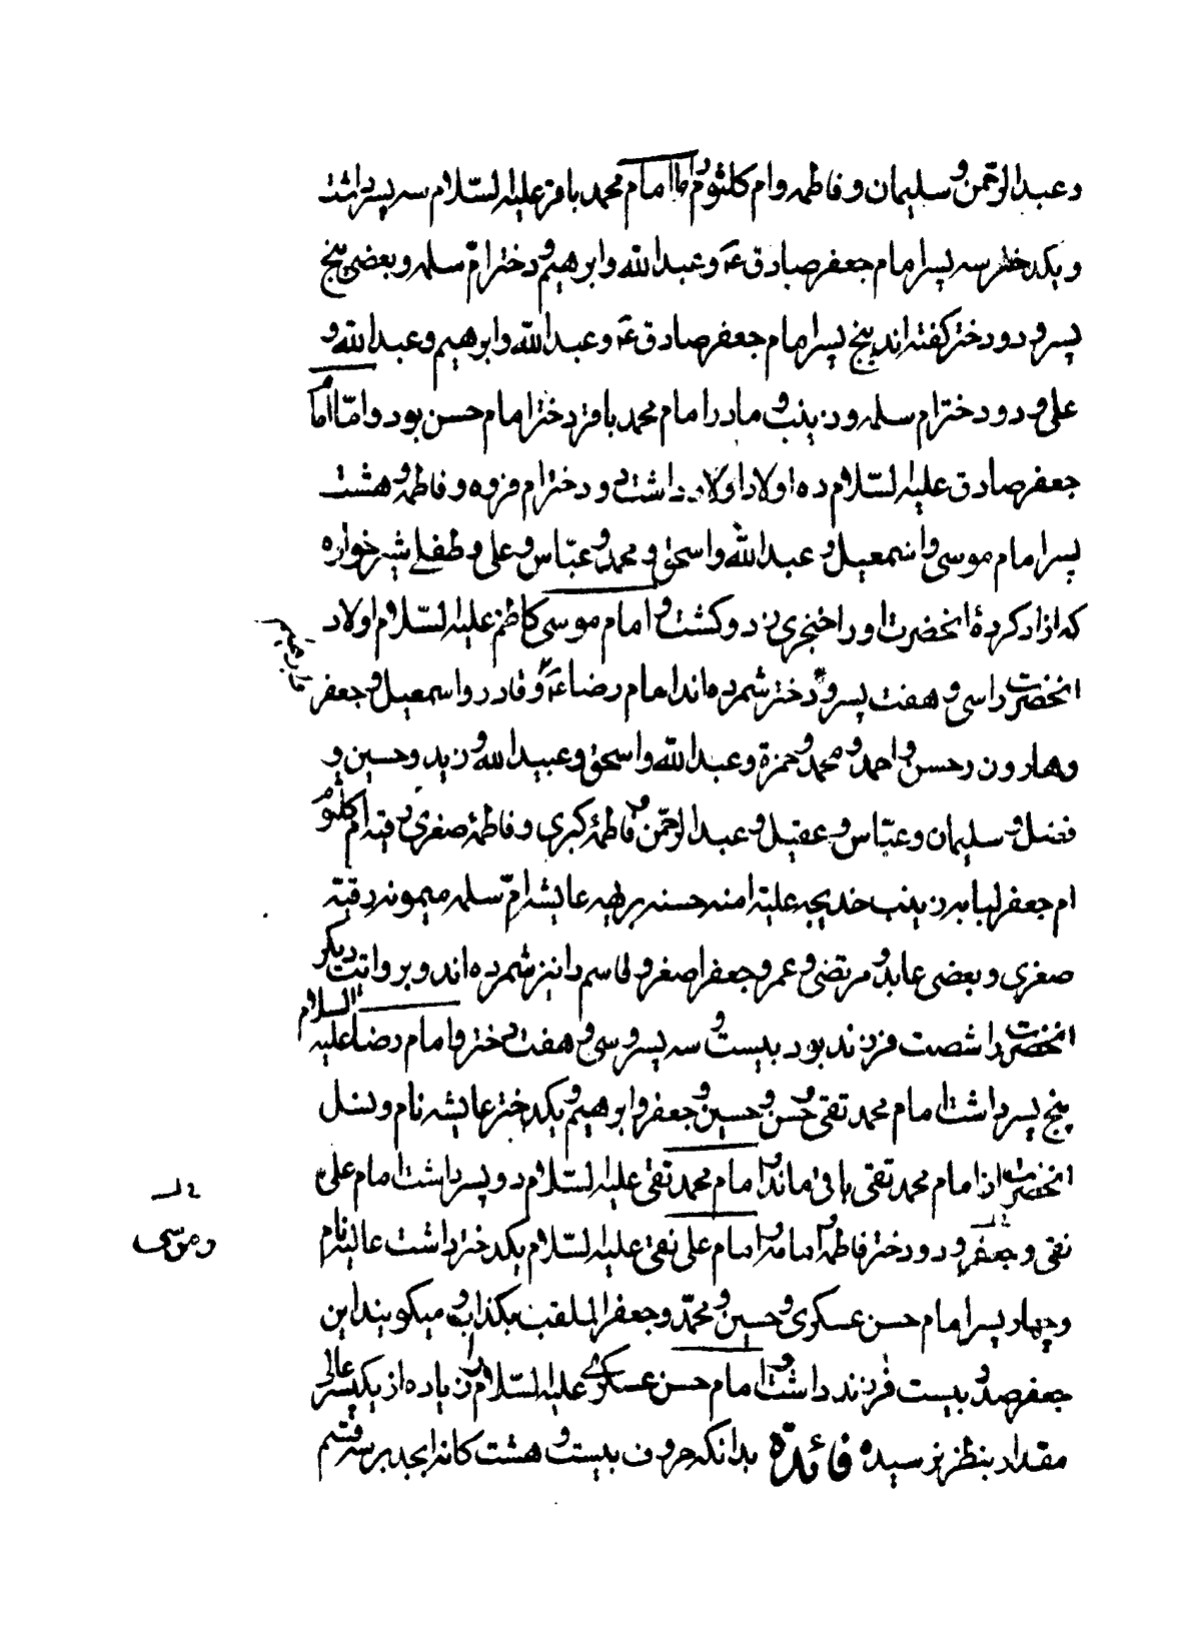 و عبدالرحمن و سلیمان و فاطمه و ام کلثوم و اما امام محمد باقر علیه السلام سه پسر داشت
و یکدختر سه پسر امام جعفر صادق ع و عبدالله و ابرهیم و دختر ام سلمه و بعضی پنج
پسر و دو دختر کفته اند پنج پسر امام جعفر صادق ع و عبدالله و ابرهیم و عبدالله و
علی و دو دختر ام سلمه و زینب و مادر امام محمد باقر دختر امام حسن بود و اما امام
جعفر صادق علیه السلام ده اولاد داشت و دختر ام فروه و فاطمه و هشت
پسر امام موسی و اسمعیل و عبدالله و اسحق و محمد و عباس و علی و طفلی شیرخواره
که ازاد کردهٔ انحضرت او را خنجری زد و کشت و امام موسی کاظم علیه السلام اولاد
انحضرت را سی و هفت پسر و دختر شمرده اند امام رضا ع و قادر و اسمعیل و جعفر
و ابرهیم
و هارون و حسن و احمد و محمد و حمزة و عبدالله و اسحق و عبیدالله و زید و حسین و
فضل و سلیمان و عباس و عقیل و عبدالرحمن و فاطمهٔ کبری و فاطمهٔ صغری رقیه ام کلثوم
ام جعفر لبابه زینب خدیجه علیه امنه حسنه بریهه عایشه ام سلمه میمونه رقیه
صغری و بعضی عابد و مرتضی و عمر و جعفر اصغر و قاسم را نیز شمرده اند و بروایت دیکر
انحضرت را شصت فرزند بود بیست و سه پسر و سی و هفت دختر و امام رضا علیه السلام
پنج پسر داشت امام محمد تقی و حسن و حسین و جعفر و ابرهیم و یکدختر عایشه نام و نسل
انحضرت از امام محمد تقی باقی ماند و امام محمد تقی علیه السلام دو پسر داشت امام علی
نقی و جعفر و دو دختر فاطمه و امامه و امام علی نقی علیه السلام یکدختر داشت عالیه نام
و موسی
و چهار پسر امام حسن عسکری و حسین و محمد و جعفر الملقب بکذاب و میکویند این
جعفر صد و بیست فرزند داشت و امام حسن عسکری علیه السلام را زیاده از یکپسر عالی
مقدار بنظر نرسیده فائدة بدانکه حروف بیست و هشت کانه ابجد بر سه قسم